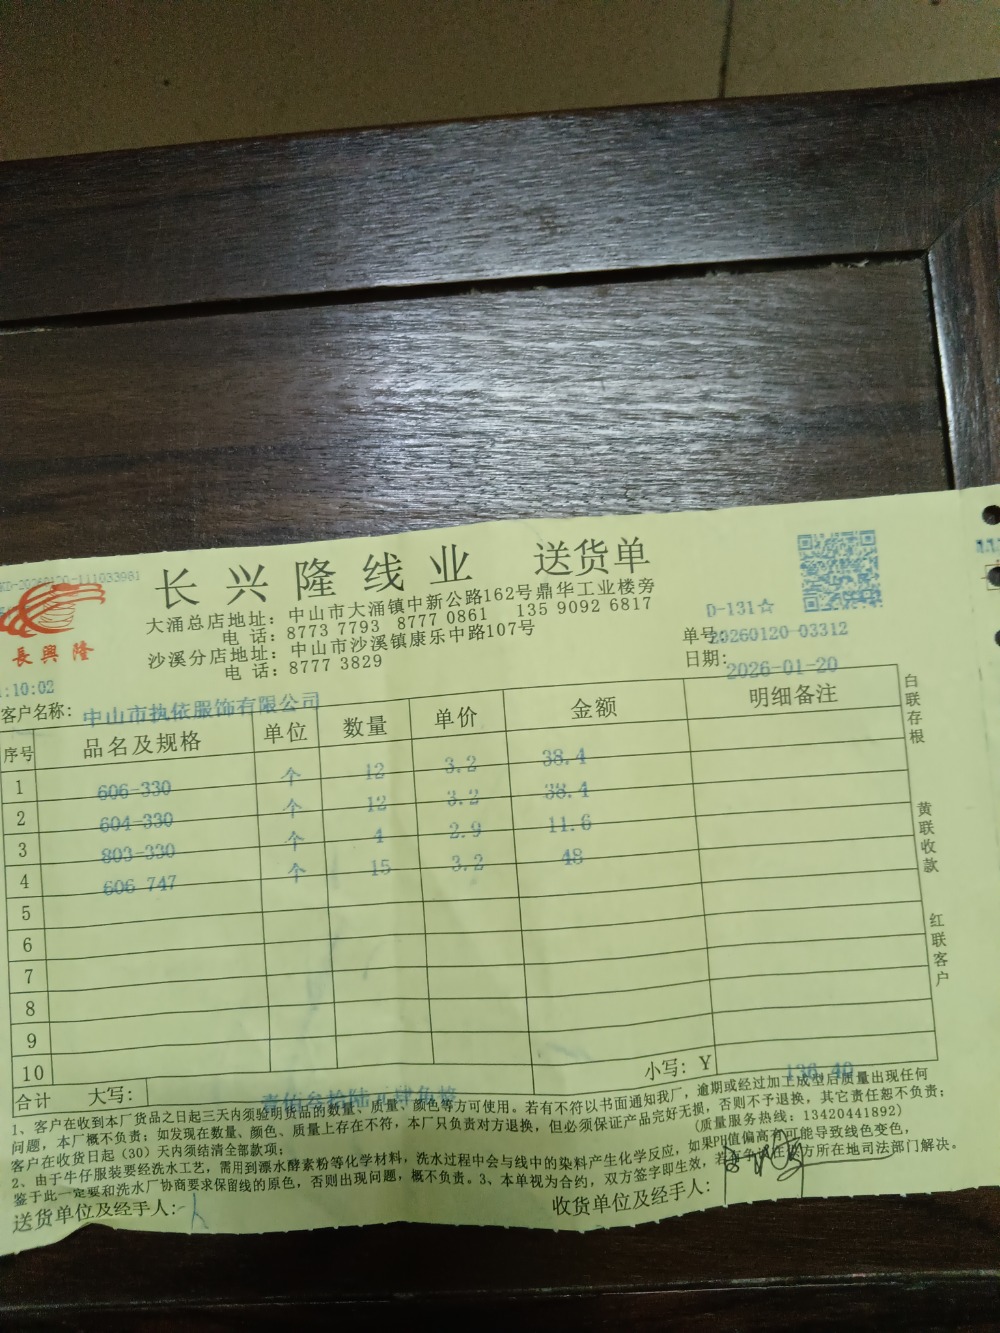 KD-20260120-111033981
长兴隆线业 送货单
長興隆
大涌总店地址：中山市大涌镇中新公路162号鼎华工业楼旁
电 话：8773 7793 8777 0861 135 9092 6817
沙溪分店地址：中山市沙溪镇康乐中路107号
电 话：8777 3829
D-131☆
单号：20260120-03312
日期：2026-01-20
:10:02
客户名称：中山市执依服饰有限公司
序号 品名及规格 单位 数量 单价 金额 明细备注
1 606-330 个 12 3.2 38.4
2 604-330 个 12 3.2 38.4
3 803-330 个 4 2.9 11.6
4 606-747 个 15 3.2 48
5
6
7
8
9
10
合计 大写：壹佰叁拾陆元肆角整 小写：Y 136.40
白联存根
黄联收款
红联客户
1、客户在收到本厂货品之日起三天内须验明货品的数量、质量、颜色等方可使用。若有不符以书面通知我厂，逾期或经过加工成型后质量出现任何
问题，本厂概不负责；如发现在数量、颜色、质量上存在不符，本厂只负责对方退换，但必须保证产品完好无损，否则不予退换，其它责任恕不负责；
客户在收货日起（30）天内须结清全部款项； （质量服务热线：13420441892）
2、由于牛仔服装要经洗水工艺，需用到漂水酵素粉等化学材料，洗水过程中会与线中的染料产生化学反应，如果PH值偏高有可能导致线色变色，
鉴于此一定要和洗水厂协商要求保留线的原色，否则出现问题，概不负责。3、本单视为合约，双方签字即生效，若有争议在 方所在地司法部门解决。
送货单位及经手人：
收货单位及经手人：